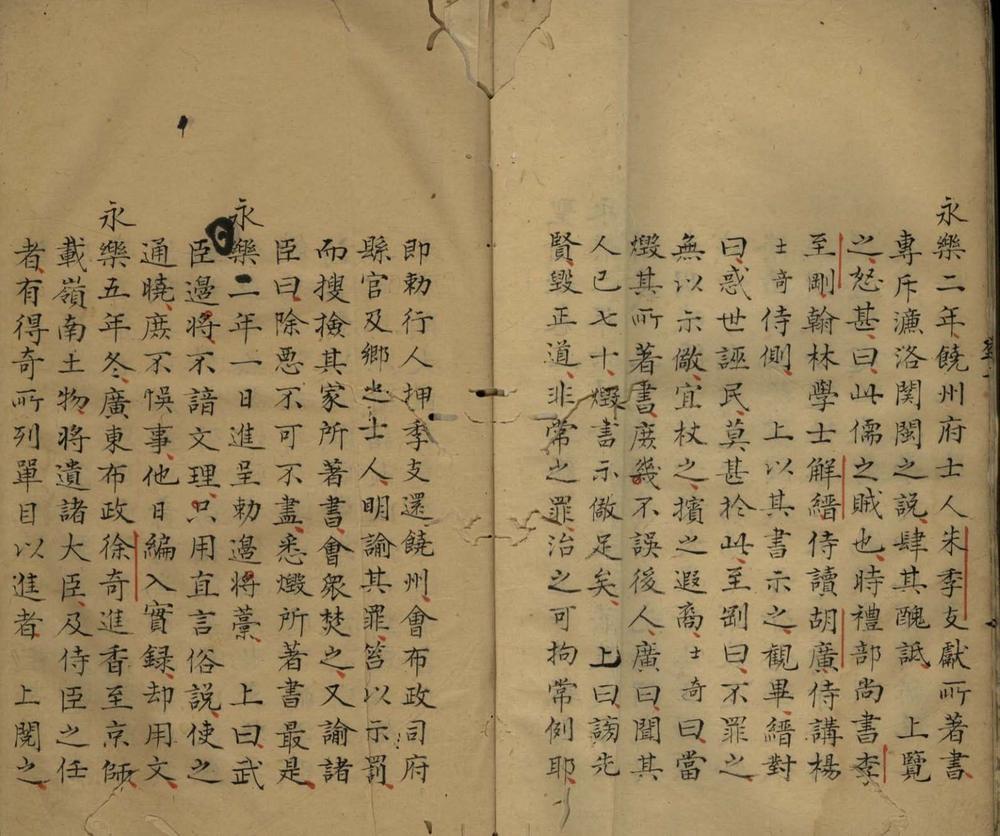 永樂二年饒州府士人朱季支獻所著書
專斥濂洛関閩之說肆其醜詆　上覽
之怒甚曰此儒之賊也時禮部尚書李
至剛翰林學士解縉侍讀胡廣侍講楊
士奇侍側　上以其書示之觀畢縉對
曰惑世誣民莫甚於此至剛曰不罪之
無以示儆宜杖之擯之遐裔士奇曰當
燬其所著書庶幾不誤後人廣曰聞其
人已七十燬書示儆足矣　上曰謗先
賢毀正道非常之罪治之可拘常例耶
即勅行人押季支還饒州會布政司府
縣官及鄉之士人明諭其罪笞以示罰
而搜撿其家所著書會眾焚之又諭諸
臣曰除惡不可不盡悉燬所著書最是
永樂二年一日進呈勅邊將藁　上曰武
臣邊將不諳文理只用直言俗說使之
通曉庶不悞事他日編入實録却用文
永樂五年冬廣東布政徐奇進香至京師
載嶺南土物將遺諸大臣及侍臣之任
者有得奇所列單目以進者　上閱之